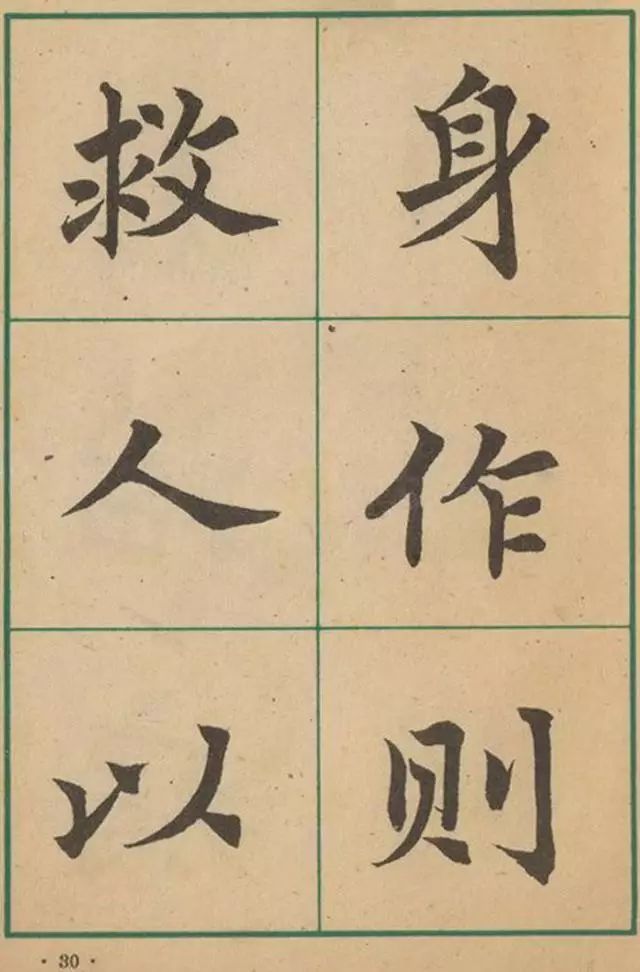 救人以
身作则
· 30 ·